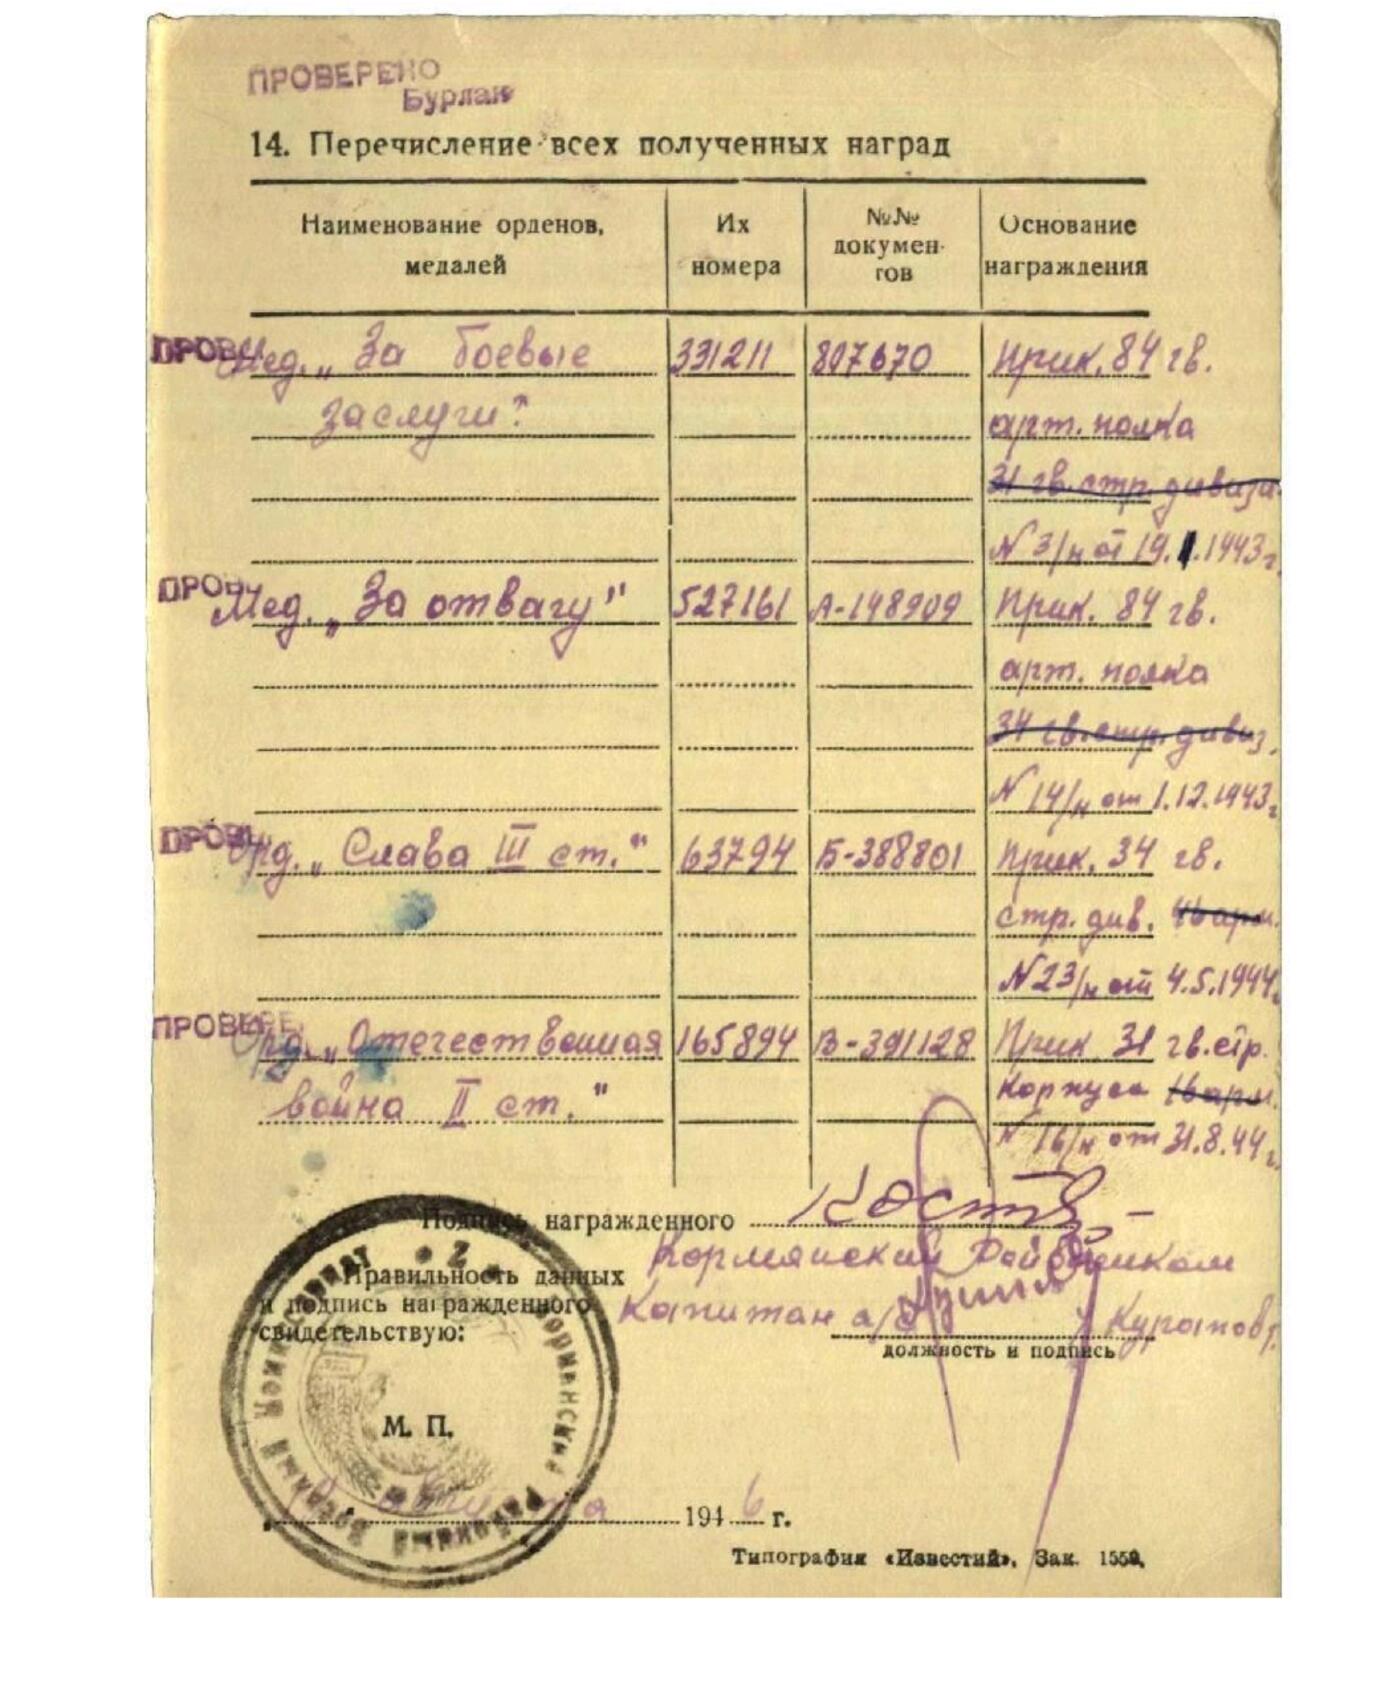 ПРОВЕРЕНО
Бурлак
14. Перечисление всех полученных наград
Наименование орденов, медалей | Их номера | №№ документов | Основание награждения
ПРОВЕ Мед. „За боевые | 331211 | 807670 | Прик. 84 гв.
заслуги" | арт. полка
31 гв. стр. дивизи
N 3/н от 19.1.1943 г.
ПРОВ Мед. „За отвагу" | 527161 | А-148909 | Прик. 84 гв.
арт. полка
34 гв. стр. дивиз.
N 14/н от 1.12.1943 г
ПРОВЕ Орд. „Слава III ст." | 63794 | Б-388801 | Прик. 34 гв.
стр. див.
N 23/н от 4.5.1944
ПРОВЕРЕ Орд. „Отечественная | 165894 | В-391128 | Прик. 31 гв. стр.
война II ст." | корпуса
N 16/н от 31.8.44 г.
Подпись награжденного
Кормянский Райвоенком
Правильность данных
и подпись награжденного
Капитан а/с
свидетельствую:
должность и подпись
М. П.
августа 1946 г.
Типография «Известий». Зак. 1559.